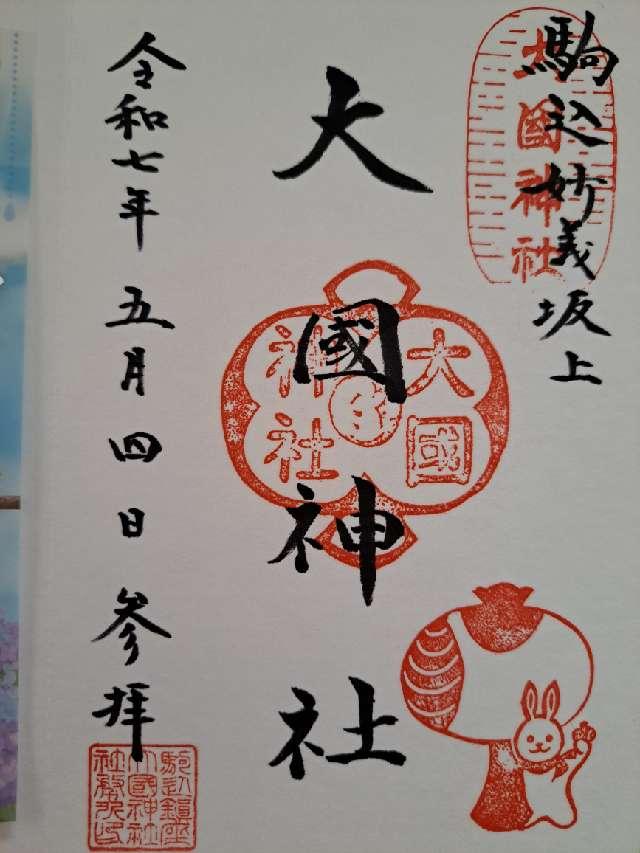 駒込妙義坂上
大國神社
大國神社
大國
神社
令和七年五月四日参拝
駒込鎮座
大國神社
社務所印